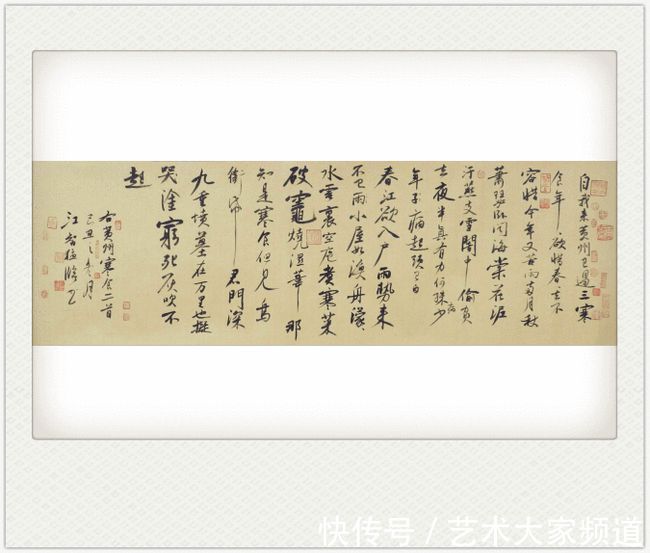 自我来黄州已過三寒
食年欲惜春去不
容惜今年又苦雨兩月秋
蕭瑟卧聞海棠花泥
汙燕支雪闇中偷負
去夜半真有力何殊少
年子病起頭已白
春江欲入户雨勢来
不已雨小屋如漁舟濛
水雲裏空庖煮寒菜
破竈燒濕葦那
知是寒食但見烏
銜帋君門深
九重墳墓在万里也擬
哭塗窮死灰吹不
起
右黄州寒食二首
己丑年月
江
快传号 / 艺术大家频道